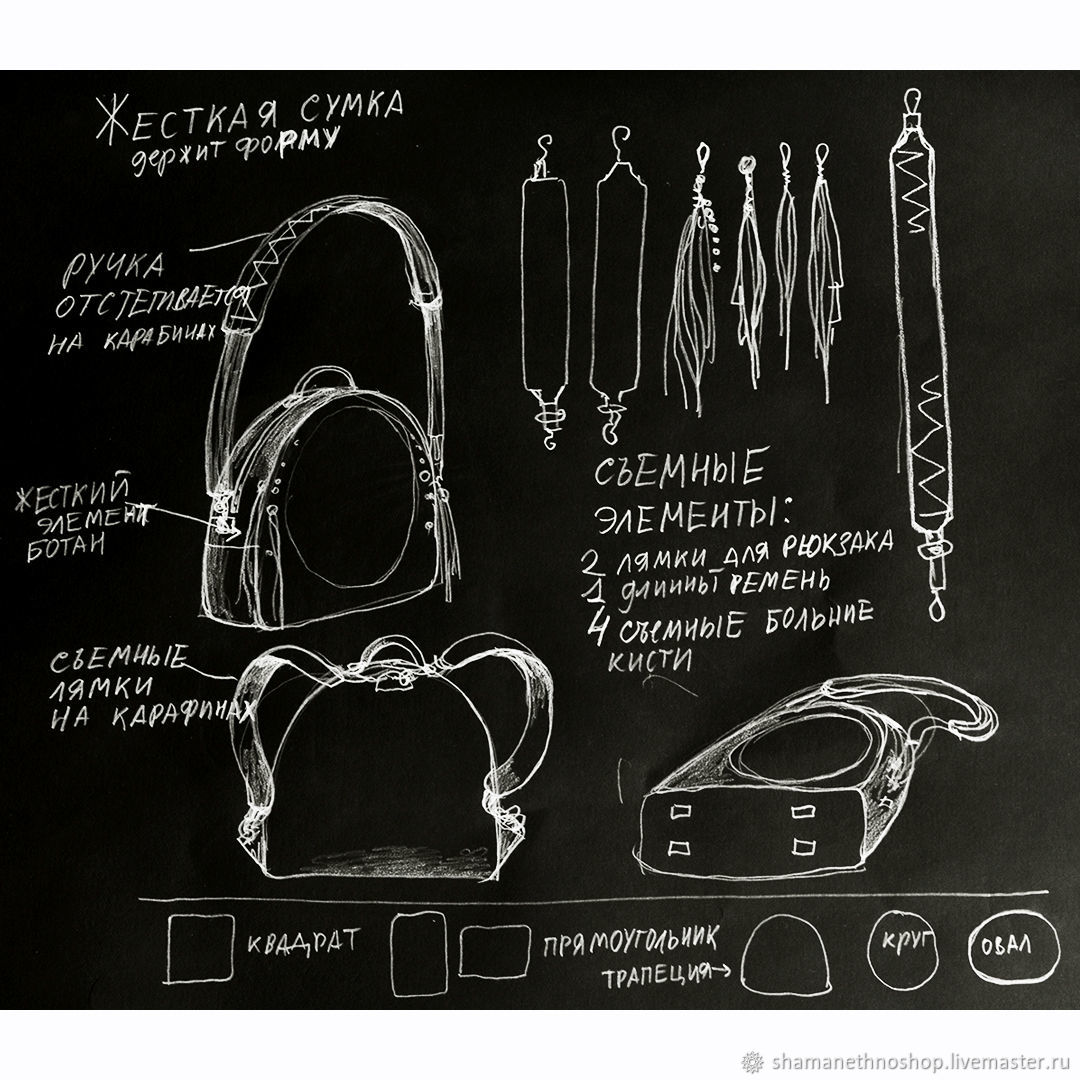 ЖЕСТКАЯ СУМКА
держит форму
РУЧКА
ОТСТЕГИВАЕТСЯ
НА КАРАБИНАХ
ЖЕСТКИЙ
ЭЛЕМЕНТ
БОТАН
СЪЕМНЫЕ
ЭЛЕМЕНТЫ:
2 ЛЯМКИ ДЛЯ РЮКЗАКА
1 длинны РЕМЕНЬ
4 съемные БОЛЬНИЕ
КИСТИ
СЪЕМНЫЕ
ЛЯМКИ
НА КАРАФИНАХ
КВАДРАТ
ПРЯМОУГОЛЬНИК
ТРАПЕЦИЯ→
КРУГ
ОВАЛ
shamanethnoshop.livemaster.ru